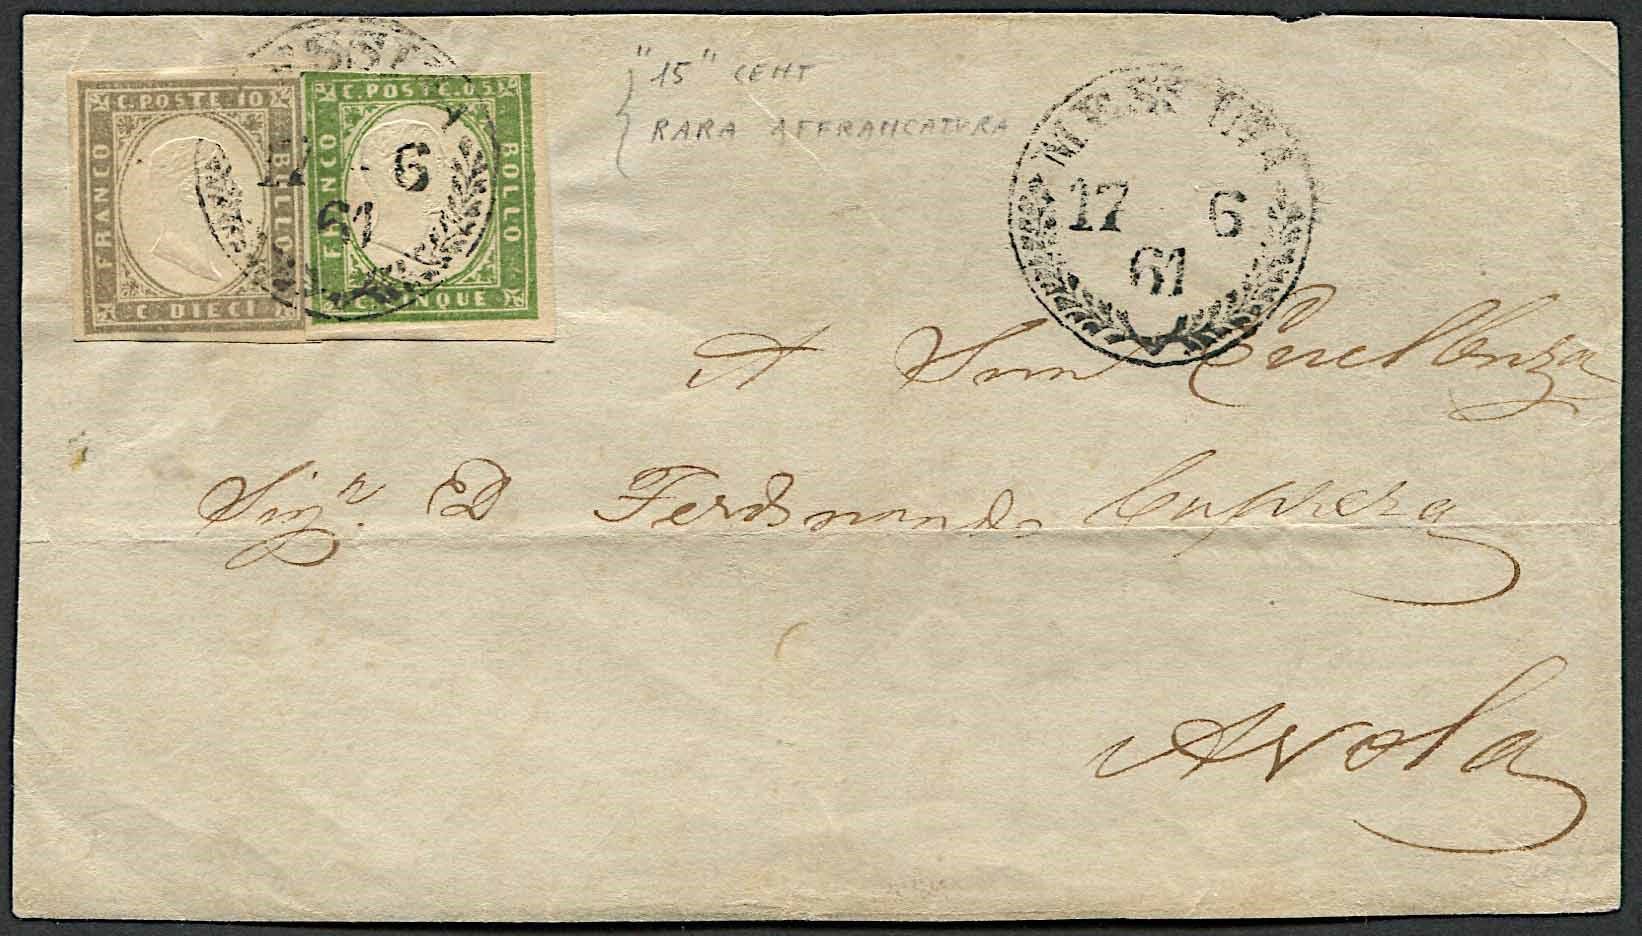 C. POSTE. 10
FRANCO
BOLLO
C. DIECI
C. POSTE. 05
BOLLO
17 6
61
"15" CENT
RARA AFFRANCATURA
MESSINA
17 6
61
A Sua Eccellenza
Sigr. D Ferdinando
Avola